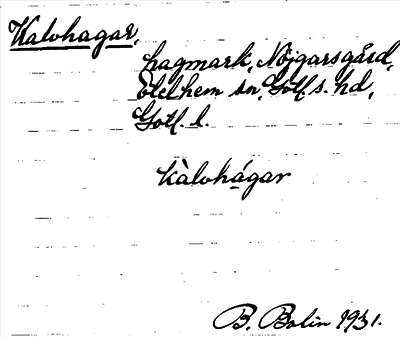 Kalvhagar,
hagmark, Nöjgarsgård,
Etelhem sn, Gotl. s. hd,
Gotl. l.
kàlvhágar
B. Bolin 1931.